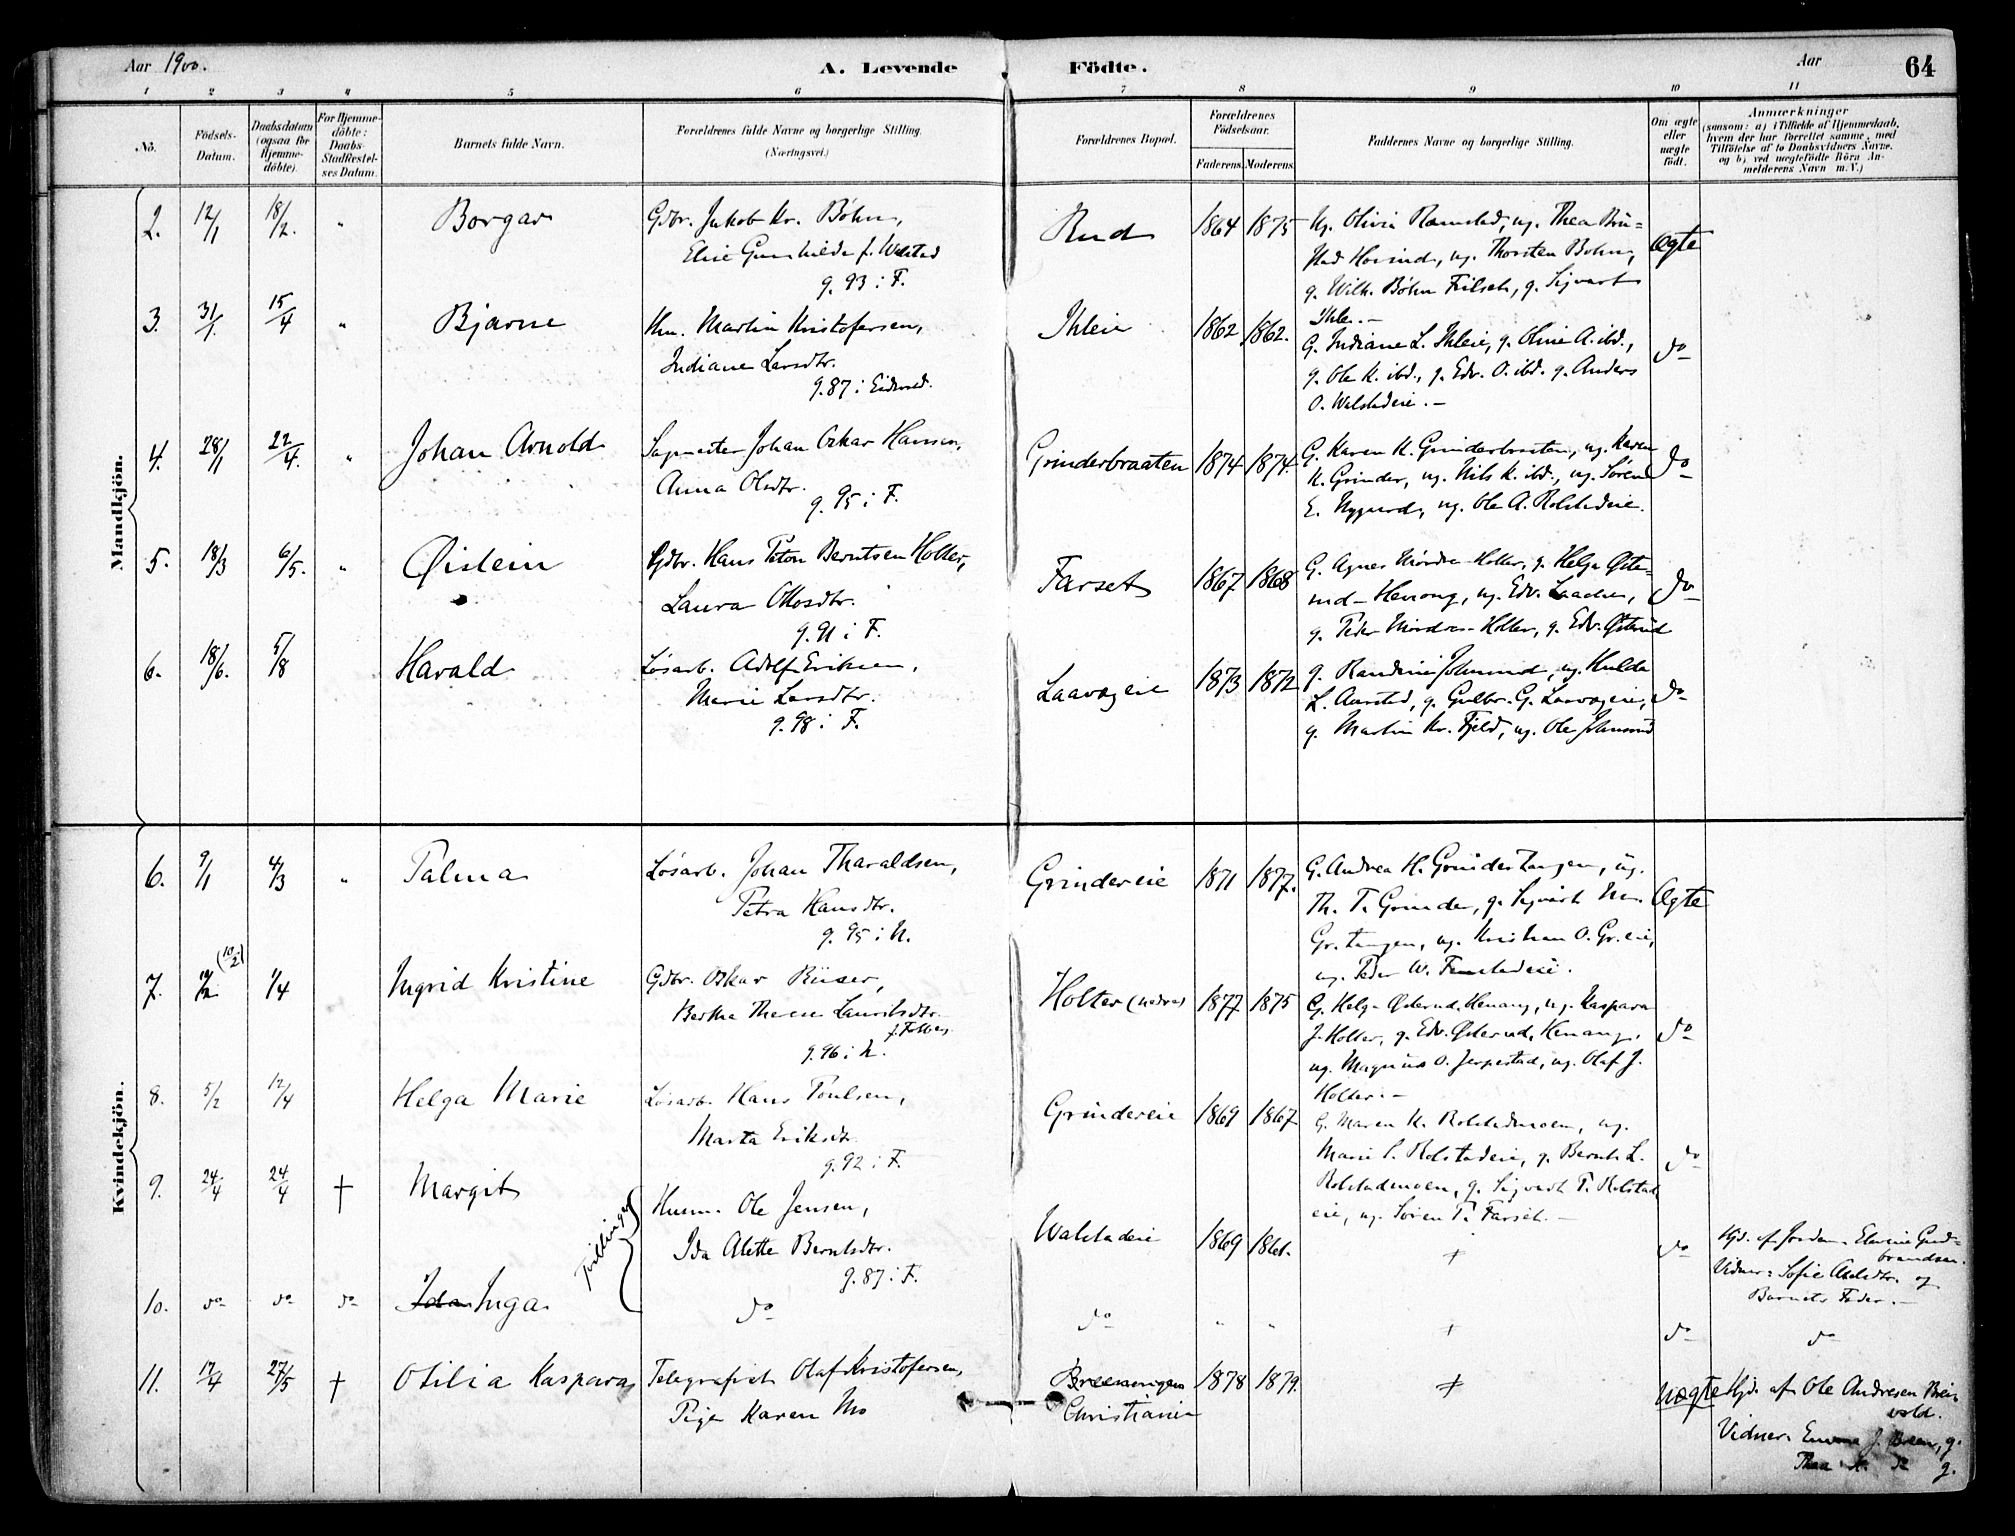 Aar 1900.
A. Levende Födte.
Aar
64
1 2 3 4 5 6 7 8 9 10 11
No.
Födsels-
Datum.
Daabsdatum
(ogsaa for
Hjemme-
döbte).
For Hjemme-
döbte:
Daabs-
Stadfæstel-
ses Datum.
Barnets fulde Navn.
Forældrenes fulde Navne og borgerlige Stilling.
(Næringsvei.)
Forældrenes Bopæl.
Forældrenes
Födselsaar.
Faderens. Moderens.
Faddernes Navne og borgerlige Stilling.
Om ægte
eller
uægte
födt.
Anmærkninger
(saasom: a) i Tilfælde af Hjemmedaab,
hvem der har forrettet samme, med
Tilföielse af to Daabsvidners Navne.
og b) ved uægtefödte Börn An-
melderens Navn m.V.)
Mandkjön.
2. 12/1 18/2. " Borgar
Gdbr. Jakob Kr. Bøhn,
Elise Gunhilda f. Walstad
g. 93 i F.
Rud 1864 1875
Ug. Olivia Ramstad, ug. Thea Bru-
stad Hovind, ug. Thorsten Bøhn,
g. Wilh. Bøhn Frilseth, g. Sigvart
Ihle.-
ægte
3. 31/1. 15/4 " Bjarne
Hm. Martin Kristofersen,
Indiane Larsdtr.
g. 87 i Eidsvold.
Ihleie 1862 1862.
G. Indiane L. Ihleie, g. Oline A. ibd.,
g. Ole K. ibd., g. Edv. O. ibd. g. Anders
O. Walstadeie.-
do
4. 28/1 22/4. " Johan Arnold
Sagmester Johan Oskar Hansen,
Anna Olsdtr.
g. 95 i F.
Grinderbraaten 1874 1874.
G. Karen K. Grinderbraaten, ug. Karen
K. Grinder, ug. Nils K. ibd., ug. Søren
E. Nygaard, ug. Ole A. Rolstadeie.
do
5. 18/3 6/5. " Øistein
Gdbr. Hans Peter Berntsen Holter,
Laura Ottosdtr.
g. 91 i F.
Farset 1867 1868
G. Agnes Nordre-Holter, g. Helga Øste-
rud-Henong, ug. Edv. Laache,
g. Peder Nordre-Holter, g. Edv. Østerud
do
6. 18/6. 5/8 Harald
Løsarb. Adolf Eriksen,
Marie Larsdtr.
g. 98 i F.
Laavageie 1873 1872
g. Randine Johnsrud, ug. Hulda
L. Aarstad, g. Gulbr. G. Laavageie,
g. Martin Kr. Fjeld, ug. Ole Johnsrud
do
Kvindekjön.
6. 9/1 4/3 " Palma
Løsarb. Johan Tharaldsen,
Petra Hansdtr.
g. 95 i N.
Grindereie 1871 1877.
G. Andrea H. Grindertangen, ug.
Th. T. Grinder, g. Sigvart
Gr. tangen, ug. Kristian O. Gr. eie,
ug. Peder W. Fenstadeie.
Ægte
7. (10/2) 1/4 Ingrid Kristine
Gdbr. Oskar Riiser,
Berthe Therese Lauritsdtr.
g. 96 i N.
Holter (nedre) 1877 1875
G. Helga Østerud, Henang, ug. Kaspara
J. Holter, g. Edv. Østerud, Henang,
ug. Magnus O. Jerpestad, ug. Olaf J.
Holter.-
do
8. 5/2 12/4 Helga Marie
Løsarb. Hans Poulsen,
Marta Eriksdtr.
g. 92 i F.
Grindereie 1869 1867
G. Maren K. Rolstadmoen, ug.
Marie S. Rolstadeie, g. Bernh. L.
Rolstadmoen, g. Sigvart T. Rolstad
eie, ug. Søren T. Farseth.-
do
9. 24/4 24/4 † Margit
Tvillinger
Husm. Ole Jensen,
Ida Alette Berntsdtr.
g. 87 i F.
Walstadeie 1869 1861.
+
do
Hjd. af Jordm. Elevine Gud-
brandsen.
Vidner: Sofie Axelsdtr. og
Barnets Fader.-
10. do do do Ida Inga
do do " " + do do
11. 17/4 27/5 † Otilia Kaspara
Telegrafist Olaf Kristofersen,
Pige Karen Mo
Christiania
1878 1879.
+
Uægte
Hjd. af Ole Andresen Brei-
vold.
Vidner. Emma J. g.
Thea g.